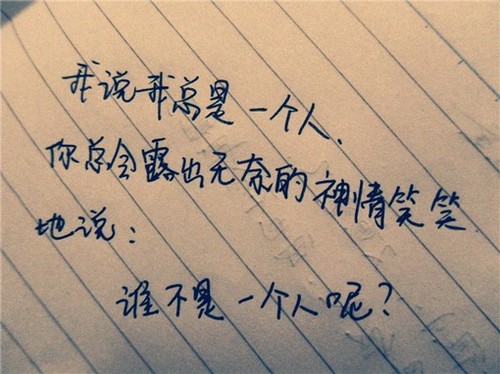 我说我总是一个人、
你总会露出无奈的神情笑笑
地说：
谁不是一个人呢？